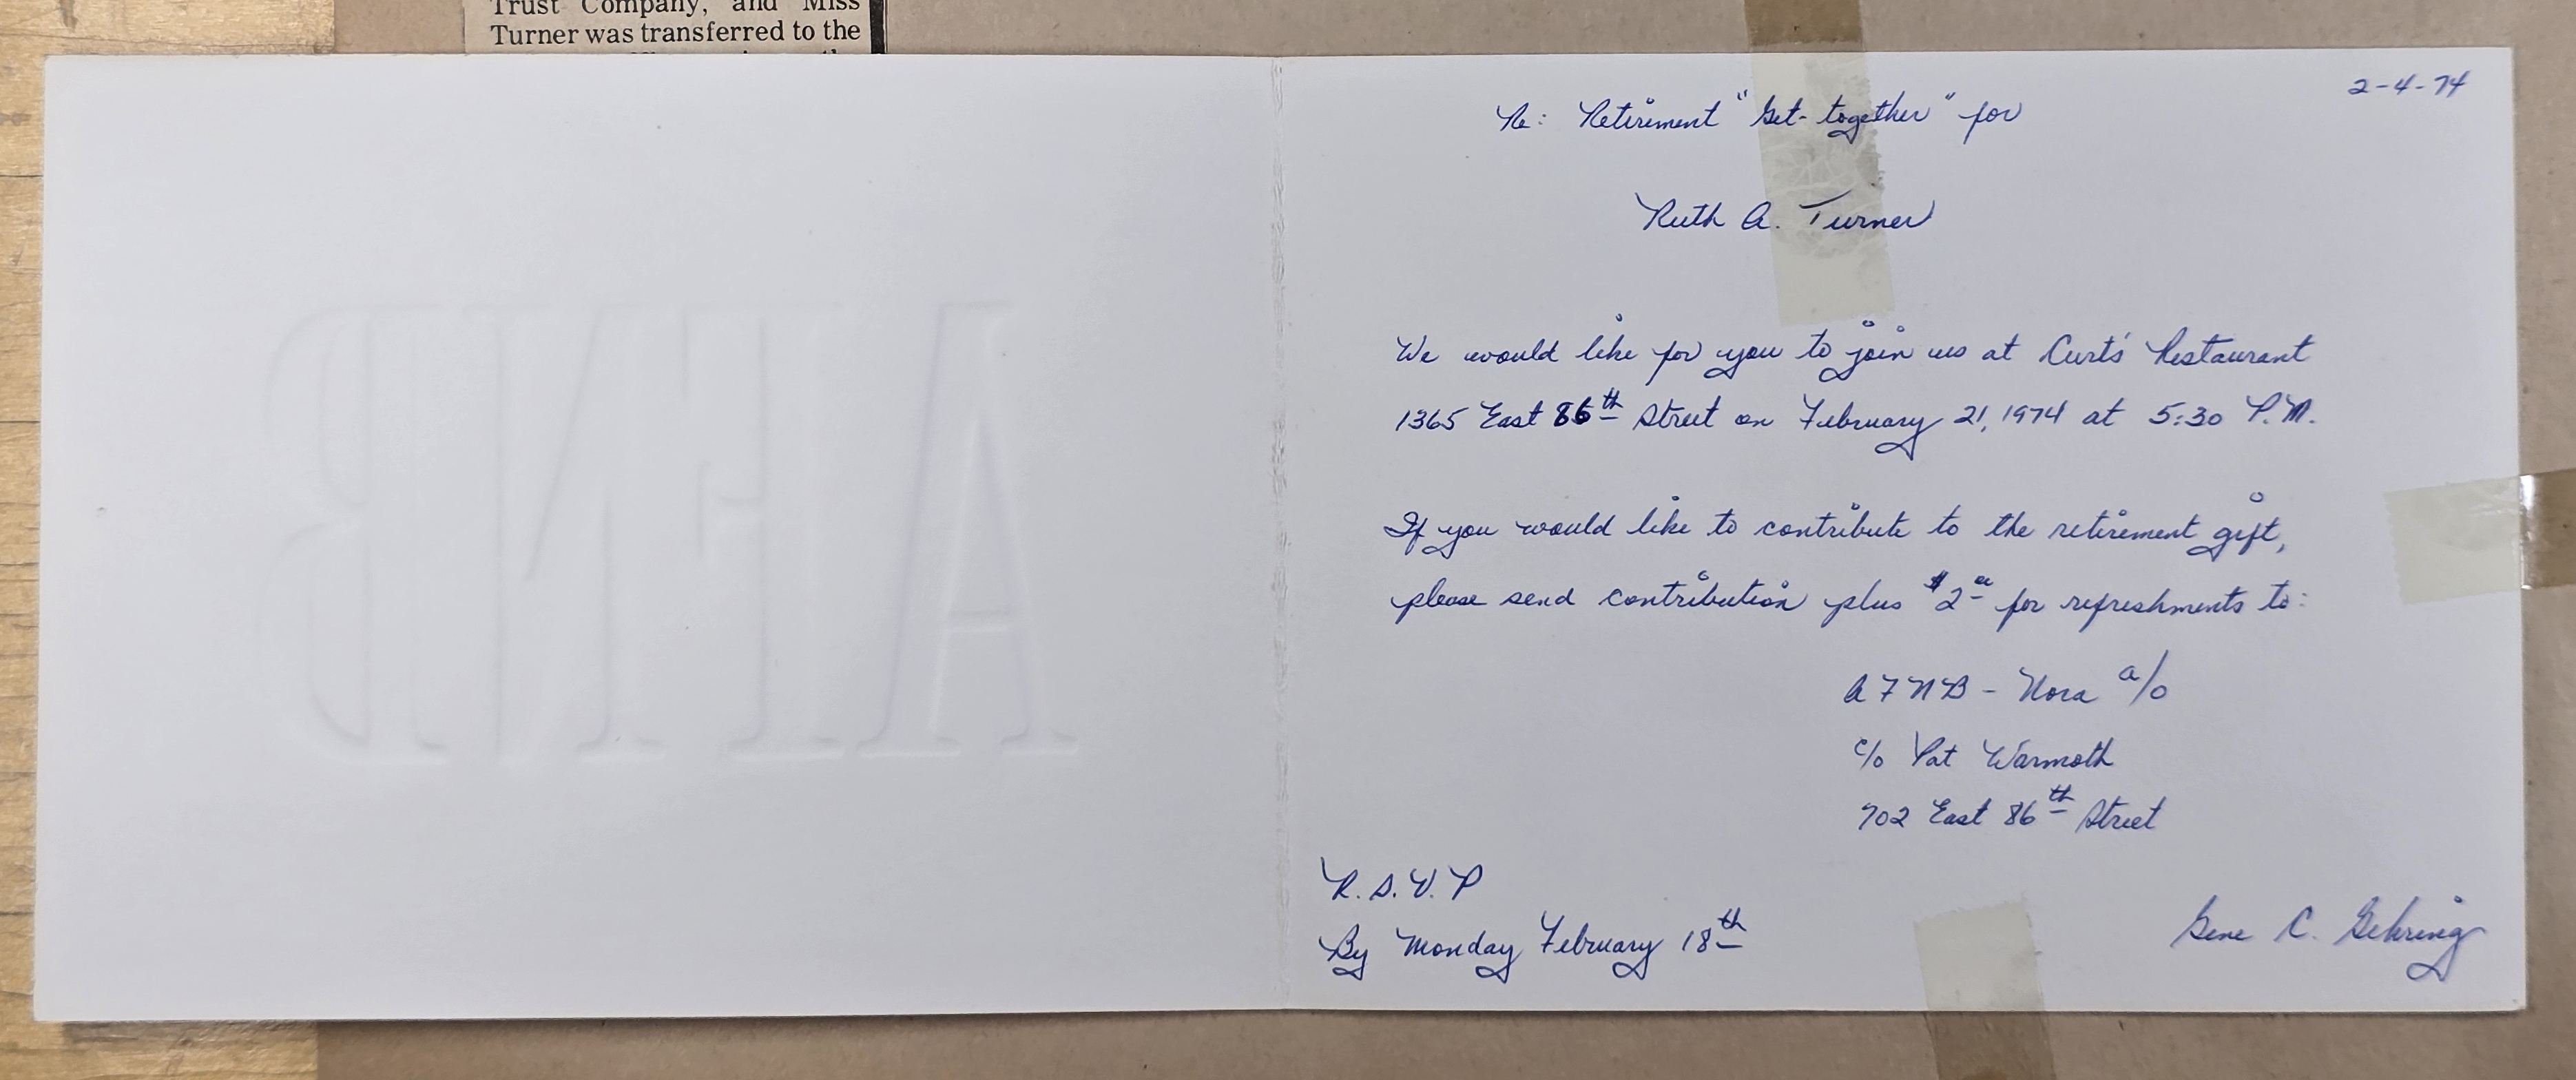 Trust Company, and Miss
Turner was transferred to the
2-4-74
Re: Retirement "Get-together" for
Ruth A. Turner
We would like for you to join us at Curt's Restaurant
1365 East 86th Street on February 21, 1974 at 5:30 P.M.
If you would like to contribute to the retirement gift,
please send contribution plus $2 for refreshments to:
AFNB - Nora a/o
c/o Pat Warmoth
702 East 86th Street
R.S.V.P
By Monday February 18th
Gene C. Gehring
AFNB